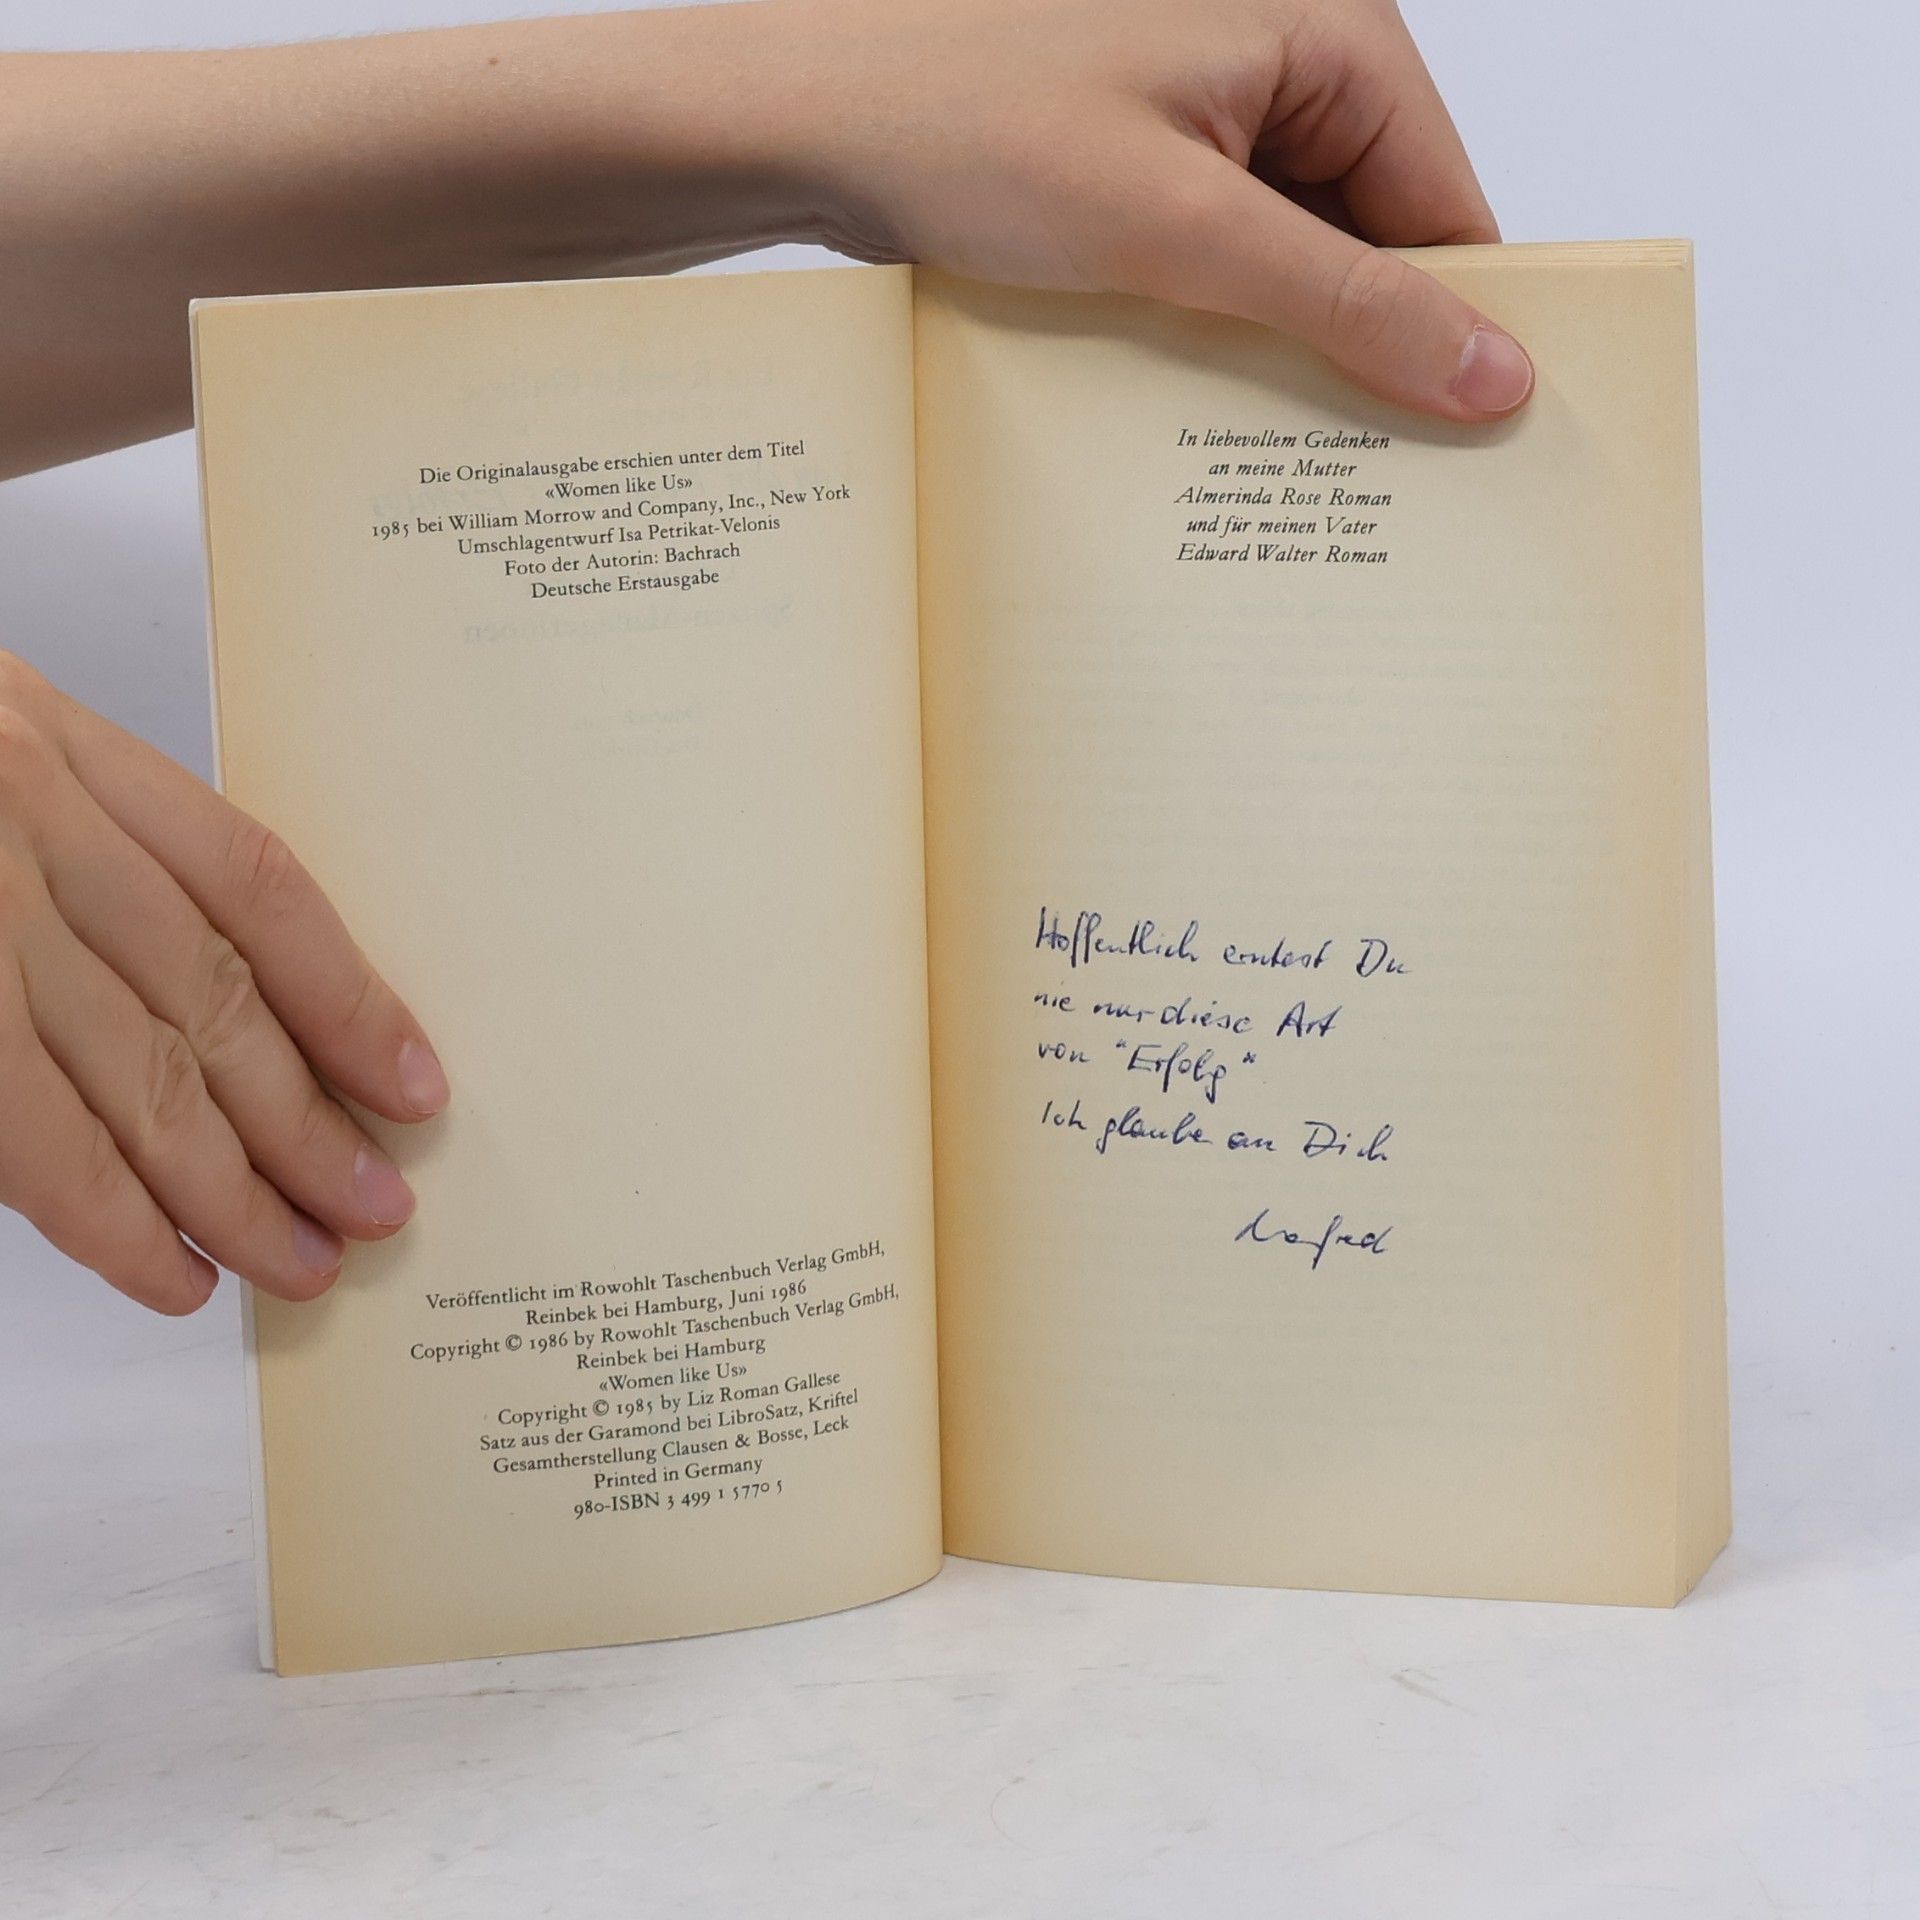 Die Originalausgabe erschien unter dem Titel
«Women like Us»
1985 bei William Morrow and Company, Inc., New York
Umschlagentwurf Isa Petrikat-Velonis
Foto der Autorin: Bachrach
Deutsche Erstausgabe
Veröffentlicht im Rowohlt Taschenbuch Verlag GmbH,
Reinbek bei Hamburg, Juni 1986
Copyright © 1986 by Rowohlt Taschenbuch Verlag GmbH,
Reinbek bei Hamburg
«Women like Us»
Copyright © 1985 by Liz Roman Gallese
Satz aus der Garamond bei LibroSatz, Kriftel
Gesamtherstellung Clausen & Bosse, Leck
Printed in Germany
980-ISBN 3 499 15770 5
In liebevollem Gedenken
an meine Mutter
Almerinda Rose Roman
und für meinen Vater
Edward Walter Roman
Hoffentlich erntest Du
nie nur diese Art
von "Erfolg"
Ich glaube an Dich
Manfred